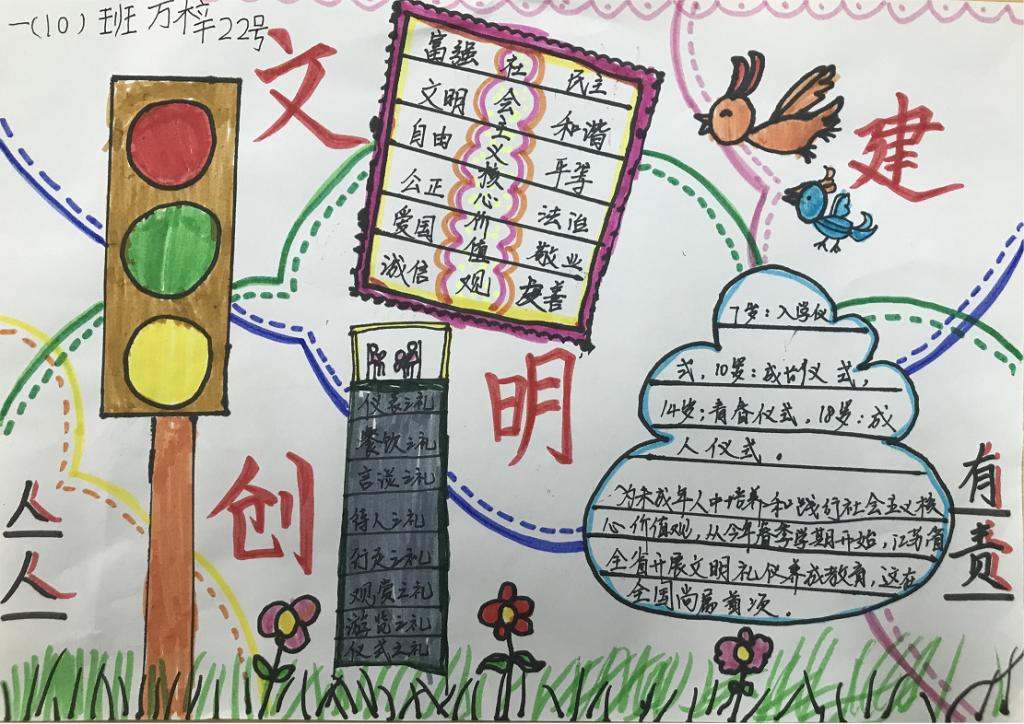 一(10)班 万梓 22号
文
明
创
建
人
人
有
责
社会主义核心价值观
富强 民主
文明 和谐
自由 平等
公正 法治
爱国 敬业
诚信 友善
仪表之礼
餐饮之礼
言谈之礼
待人之礼
行走之礼
观赏之礼
游览之礼
仪式之礼
7岁:入学仪
式,10岁:成 仪式,
14岁:青春仪式,18岁:成
人仪式。
为未成年人中培养和践行社会主义核
心价值观,从今年春季学期开始,江苏省
全省开展文明礼仪养成教育,这在
全国尚属首项。